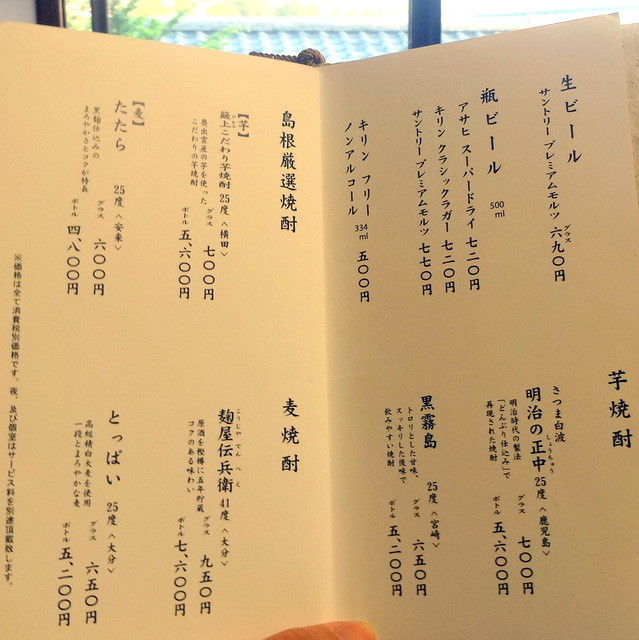 生ビール
サントリー プレミアムモルツ グラス 六九〇円
瓶ビール 500ml
アサヒ スーパードライ 七二〇円
キリン クラシックラガー 七二〇円
サントリー プレミアムモルツ 七七〇円
キリン フリー 334ml 五〇〇円
ノンアルコール
芋焼酎
さつま白波
明治の正中 しょうちゅう 25度 〈鹿児島〉
明治時代の製法
「どんぶり仕込み」で
再現された焼酎
グラス 七〇〇円
ボトル 五、六〇〇円
黒霧島 25度 〈宮崎〉
トロリとした甘味、
スッキリした後味で
飲みやすい焼酎
グラス 六五〇円
ボトル 五、二〇〇円
島根厳選焼酎
【芋】
蔵上こだわり芋焼酎 25度 〈横田〉
奥出雲産の芋を使った
こだわりの芋焼酎
グラス 七〇〇円
ボトル 五、六〇〇円
【麦】
たたら 25度 〈安来〉
黒麹仕込みの
まろやかさとコクが特長
グラス 六〇〇円
ボトル 四、八〇〇円
麦焼酎
麹屋伝兵衛 こうじやでんべえ 41度 〈大分〉
原酒を樫樽に五年貯蔵
コクのある味わい
グラス 九五〇円
ボトル 七、六〇〇円
とっぱい 25度 〈大分〉
高級精白大麦を使用
一段とまろやかな麦
グラス 六五〇円
ボトル 五、二〇〇円
※価格は全て消費税別価格です。夜、及び個室はサービス料を別途頂戴致します。